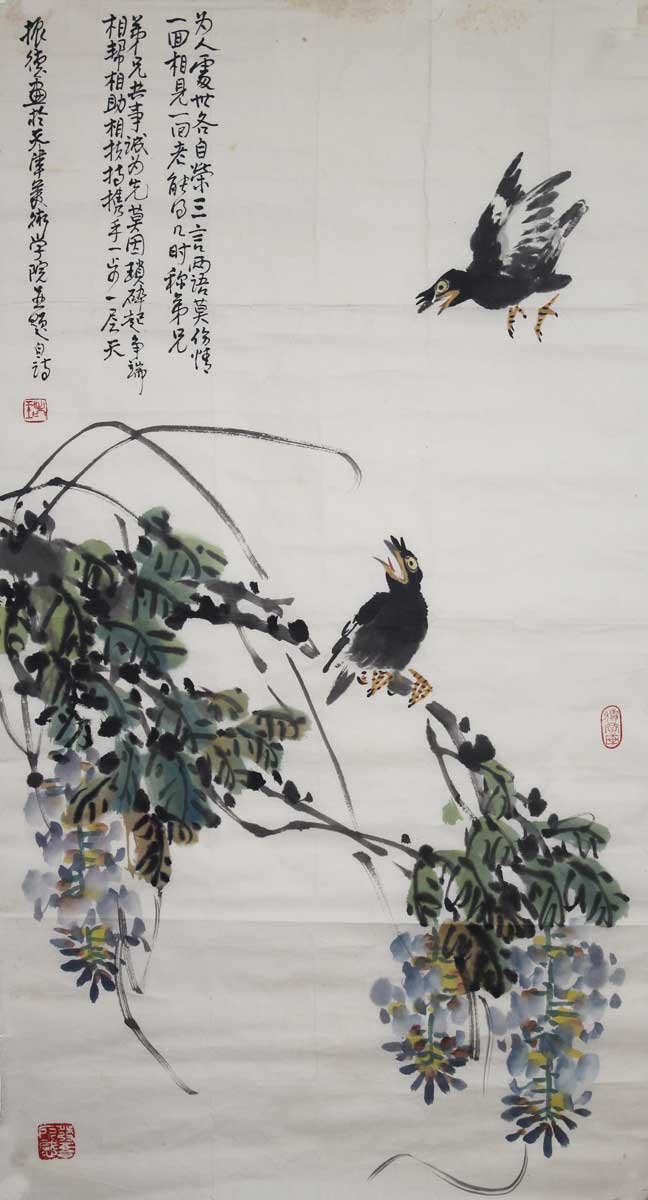 为人處世各自荣三言两语莫伤情
一囬相見一回老能得几时称弟兄
弟兄共事诚为先莫因琐碎起争端
相帮相助相扶持携手一步一层天
振德画於天津美術学院並题自诗